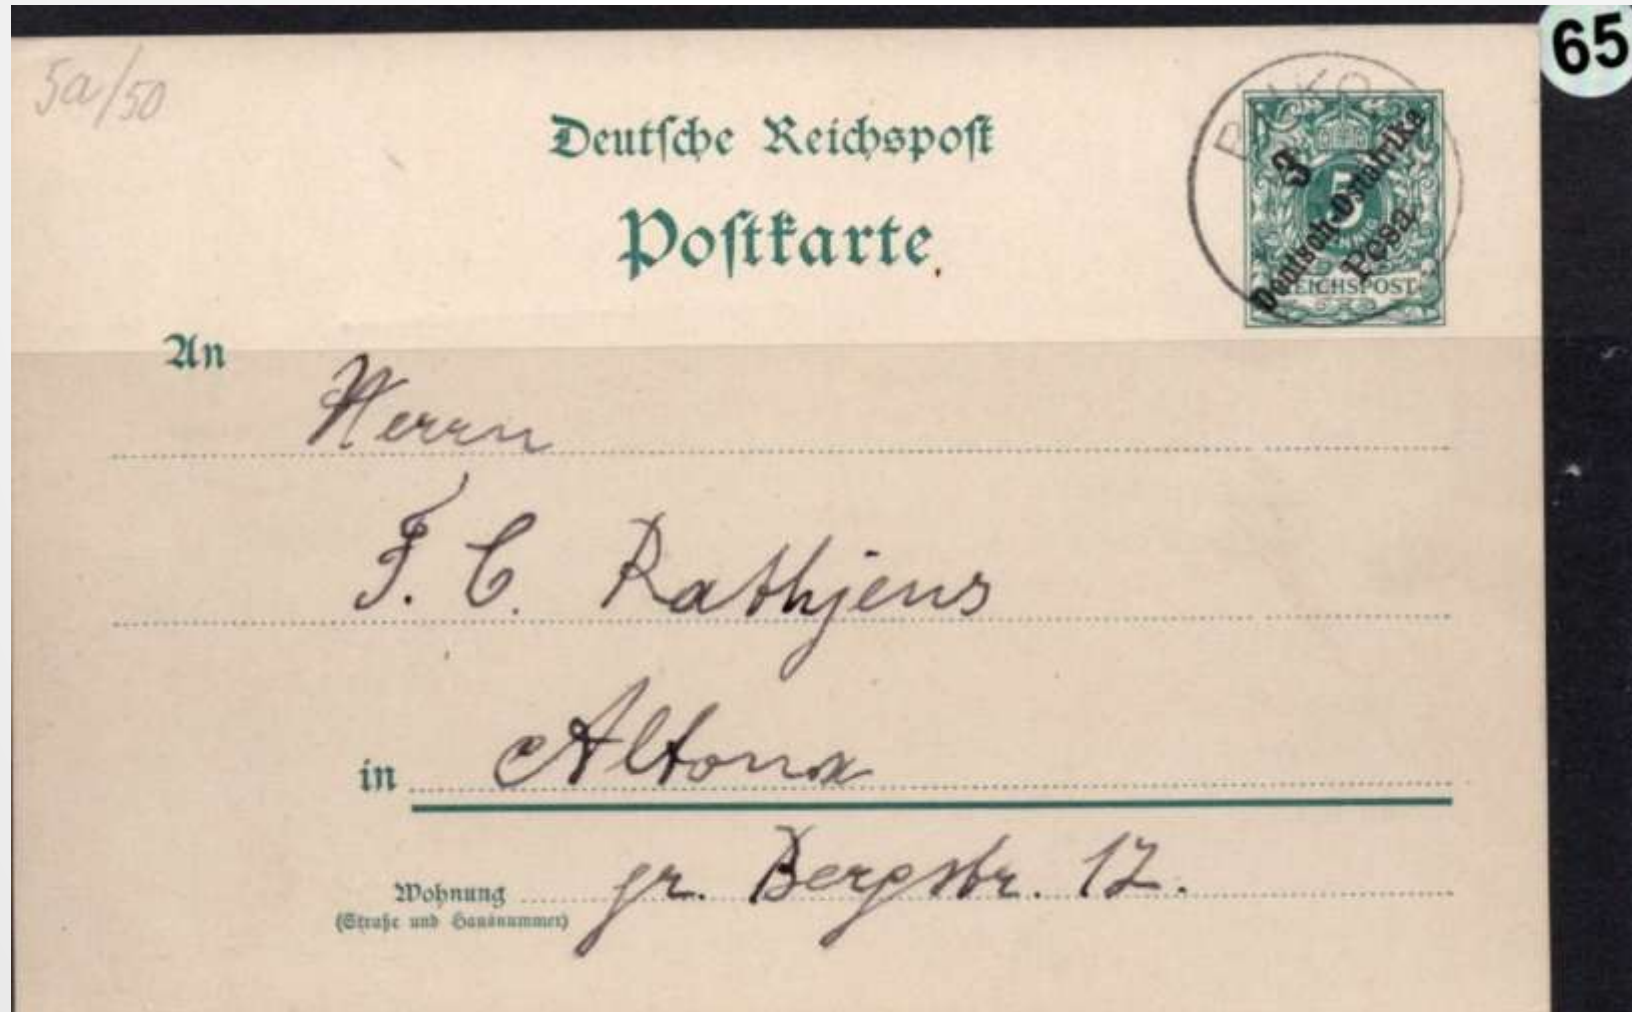 65
5a/50
Deutsche Reichspost
Postkarte
3
5
Deutsch-Ostafrika
Pesa
REICHSPOST
An
Herrn
F. C. Rathjens
in Altona
Wohnung gr. Bergstr. 17.
(Straße und Hausnummer)